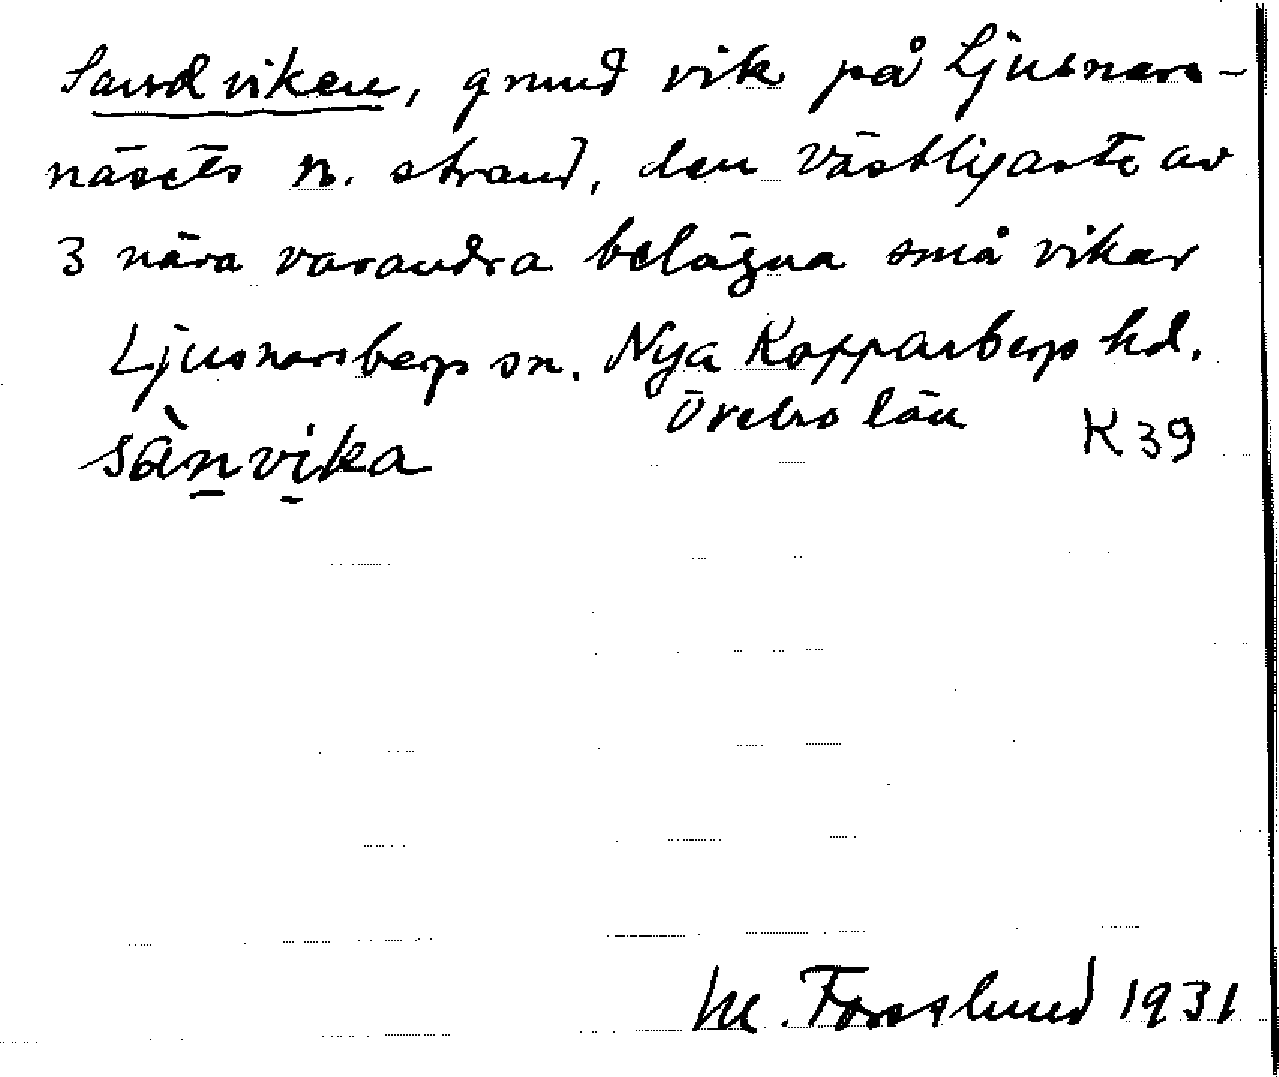 Sandviken, grund vik på Ljusnars-
näsets n. strand, den västligaste av
3 nära varandra belägna små vikar
Ljusnarsbergs sn. Nya Kopparbergs hd.
Örebro län K39
sànvika
M. Forslund 1931